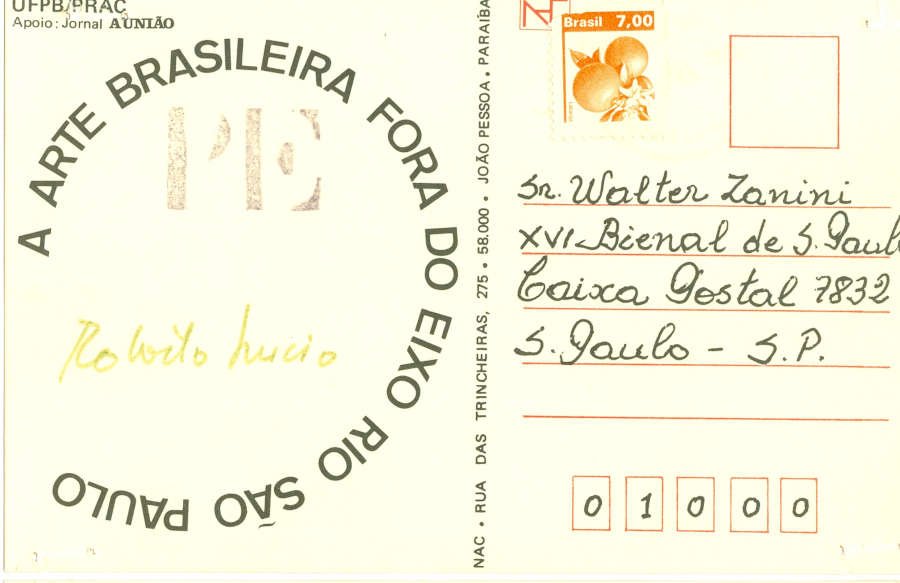 UFPB/PRAC
Apoio: Jornal A UNIÃO
A ARTE BRASILEIRA FORA DO EIXO RIO SÃO PAULO
PE
NAC • RUA DAS TRINCHEIRAS, 275 • 58.000 • JOÃO PESSOA • PARAÍBA
Brasil 7,00
Sr. Walter Zanini
XVI Bienal de S. Paulo
Caixa Postal 7832
S. Paulo - S.P.
0 1 0 0 0